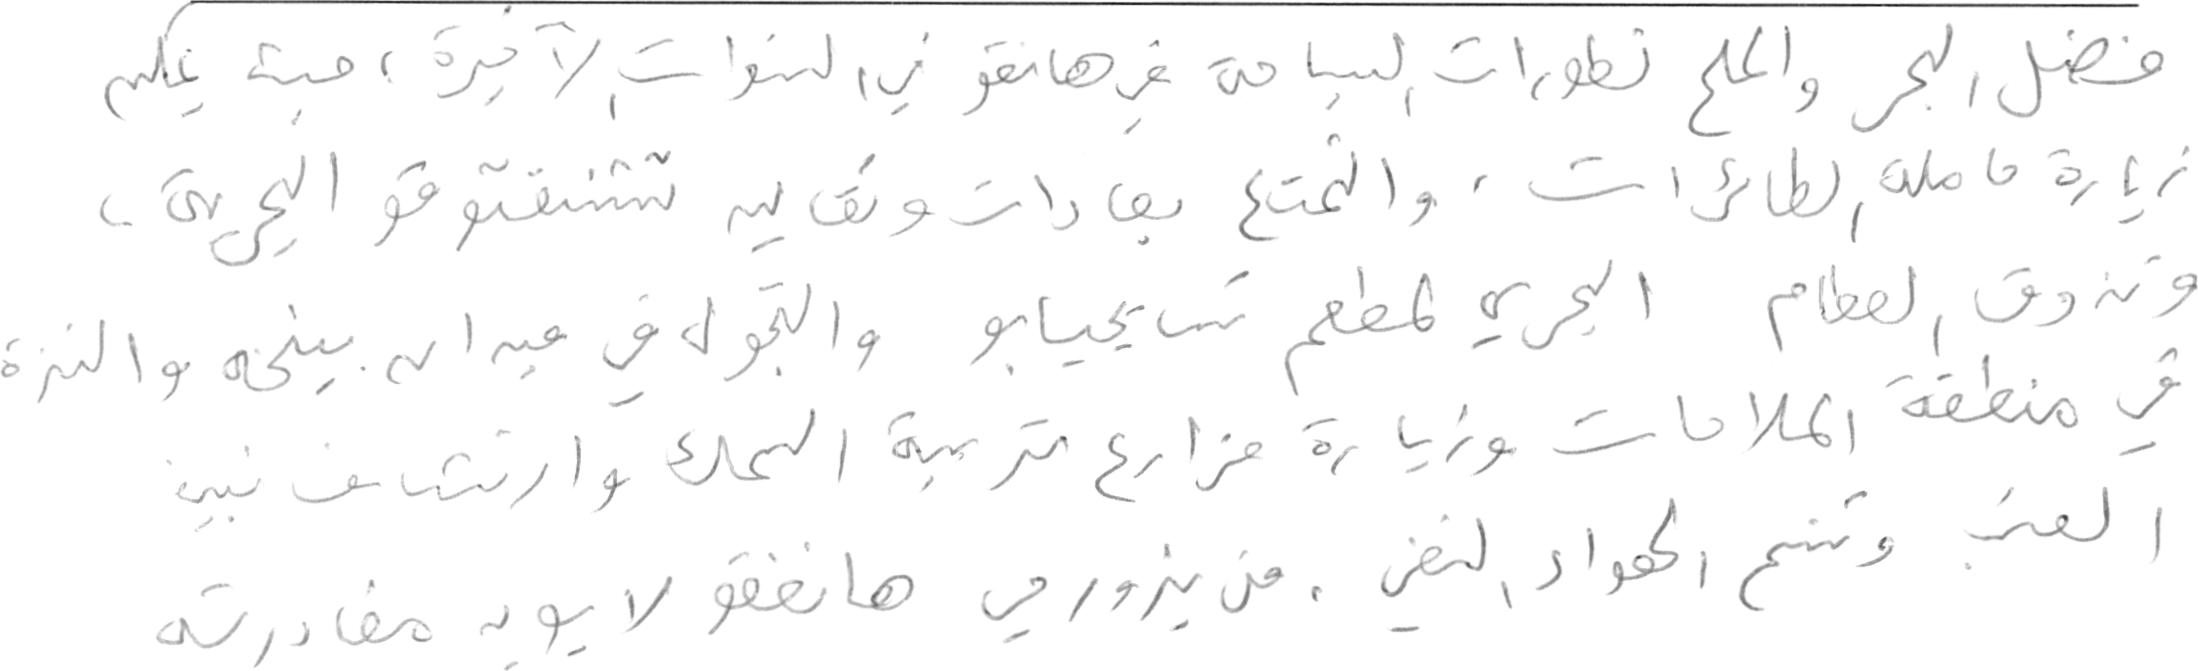 فضل البحر والملح تطورات السياحة في هانغو في السنوات الآخيرة، حيث يمكن
زيارة حاملة الطائرات، والتمتع بعادات وتقاليد تشنغتوقو البحرية،
وتذوق الطعام البحري لمطعم تشايجيابو والتجول في ميدان بينخه والنزهة
في منطقة الملاحات وزيارة مزارع تربية السمك وارتشاف نبيذ
العنب وتنسم الهواء النقي. من يزور حي هانغو لا يود مغادرته